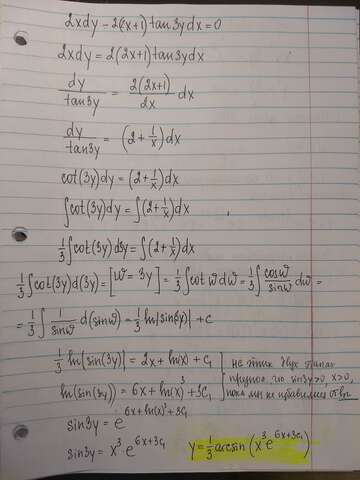 2xdy - 2(2x+1)tan3ydx = 0
2xdy = 2(2x+1)tan3ydx
dy/tan3y = 2(2x+1)/2x dx
dy/tan3y = (2 + 1/x)dx
cot(3y)dy = (2 + 1/x)dx
∫cot(3y)dy = ∫(2 + 1/x)dx
1/3 ∫cot(3y)d3y = ∫(2 + 1/x)dx
1/3 ∫cot(3y)d(3y) = [w = 3y] = 1/3 ∫cot w dw = 1/3 ∫ cosw/sinw dw =
= 1/3 ∫ 1/sinw d(sinw) = 1/3 ln|sin(3y)| + c
1/3 ln|sin(3y)| = 2x + ln(x) + c₁
ln(sin(3y)) = 6x + ln(x)³ + 3c₁
что sin3y>0, x>0,
sin3y = e^(6x+ln(x)³+3c₁)
sin3y = x³ e^(6x+3c₁) y = 1/3 arcsin(x³ e^(6x+3c₁))